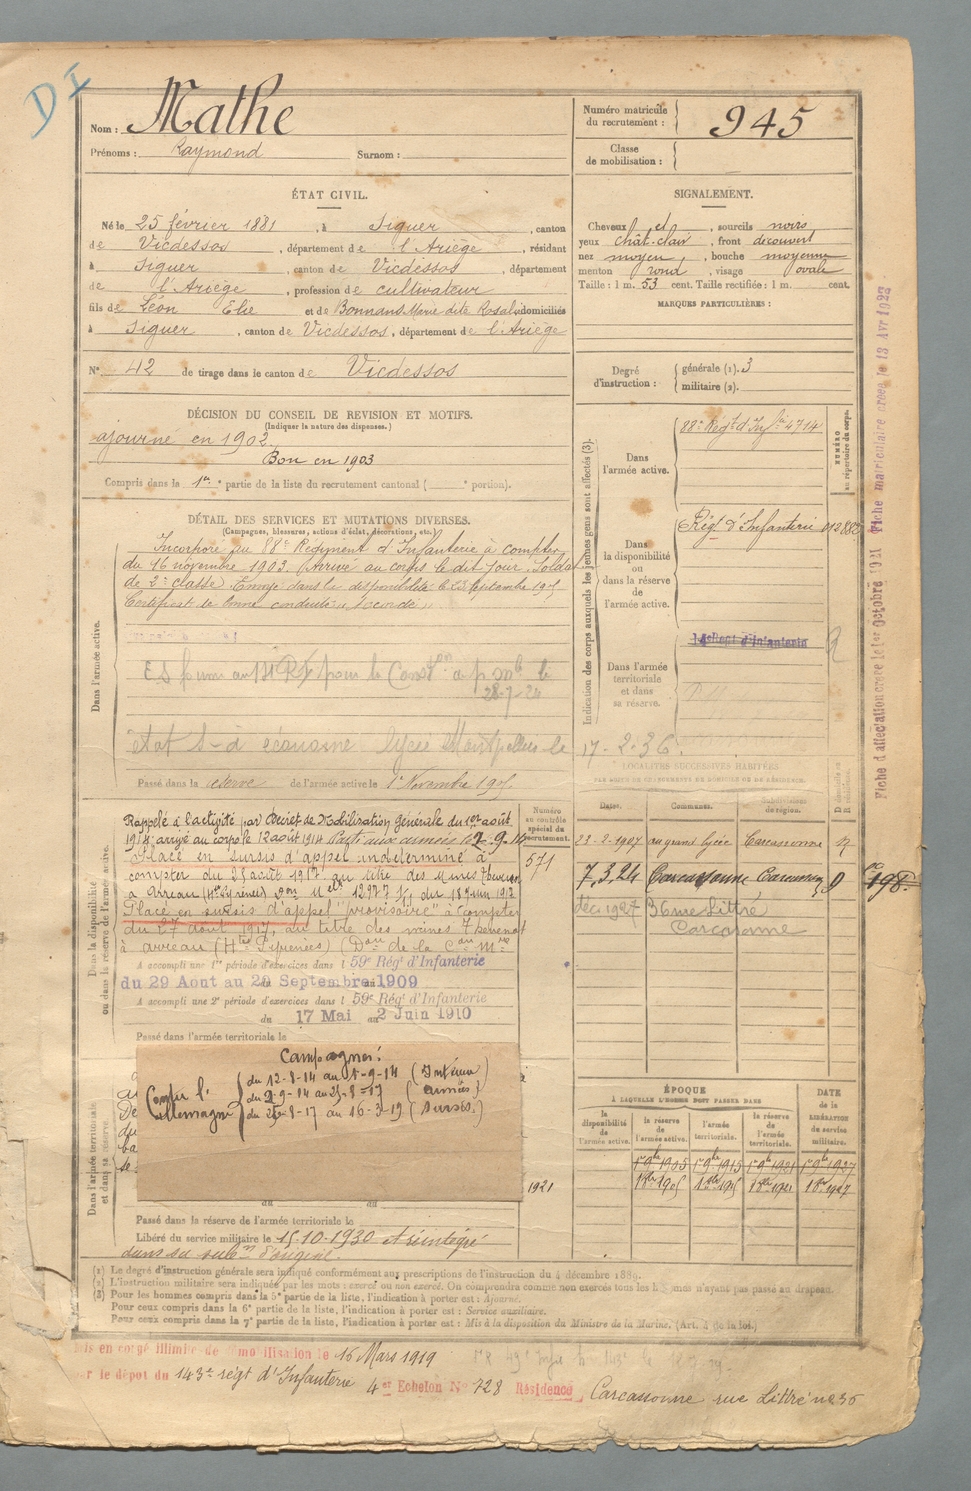 DI
Nom : Mathe
Prénoms : Raymond Surnom :
Numéro matricule du recrutement : 945
Classe de mobilisation :
ÉTAT CIVIL.
Né le 25 février 1881, à Siguer, canton
de Vicdessos, département de l'Ariège, résidant
à Siguer, canton de Vicdessos, département
de l'Ariège, profession de cultivateur
fils de Léon Elie et de Bonnans Marie dite Rosalie domiciliés
à Siguer, canton de Vicdessos, département de l'Ariège
N° 42 de tirage dans le canton de Vicdessos
SIGNALEMENT.
Cheveux et, sourcils noirs
yeux chât-clair, front découvert
nez moyen, bouche moyenne
menton rond, visage ovale
Taille : 1 m. 53 cent. Taille rectifiée : 1 m. cent.
MARQUES PARTICULIÈRES :
Degré d'instruction : générale (1). 3
militaire (2).
DÉCISION DU CONSEIL DE REVISION ET MOTIFS.
(Indiquer la nature des dispenses.)
ajourné en 1902.
Bon en 1903
Compris dans la 1re partie de la liste du recrutement cantonal ( e portion).
DÉTAIL DES SERVICES ET MUTATIONS DIVERSES.
(Campagnes, blessures, actions d'éclat, décorations, etc.)
Dans l'armée active.
Incorporé au 88e Régiment d'Infanterie à compter
du 16 novembre 1903. Arrivé au corps le dit jour. Soldat
de 2e classe. Envoyé dans la disponibilité le septembre 190
Certificat de bonne conduite accordé.
le
28-7-24
état économe lycée Montpellier le 17-2-36.
Passé dans la réserve de l'armée active le 1er Novembre 190
Indication des corps auxquels les jeunes gens sont affectés (3).
NUMÉRO au répertoire du corps.
Dans l'armée active.
88e Régt d'Infie 4714
Dans la disponibilité ou dans la réserve de l'armée active.
Régt d'Infanterie 012882
Dans l'armée territoriale et dans sa réserve.
d'Infanterie
Fiche d'affectation créée le 1er Octobre 1921 Fiche matriculaire créée le 13 Avr 1923
LOCALITÉS SUCCESSIVES HABITÉES
PAR SUITE DE CHANGEMENTS DE DOMICILE OU DE RÉSIDENCE.
Dates. Communes. Subdivision de région. D domicile ou R résidence.
23-2-1907 au grand lycée Carcassonne R
7.3.24 Carcassonne Carcassonne D
déc. 1927 36 rue Littré
Carcassonne
Dans la disponibilité ou dans la réserve de l'armée active.
Numéro au contrôle spécial du recrutement.
571
Rappelé à l'activité par Décret de Mobilisation Générale du 1er août
1914 arrivé au corps le 12 août 1914 Parti aux armées le 2-9-14
Placé en sursis d'appel indéterminé à
compter du 25 août 1917 au titre des Mines Thévenot
à Arreau (Htes Pyrénées) 12977
Placé en sursis d'appel "provisoire" à compter
du 27 août 1917, au titre des mines Thévenot
à arreau (Htes Pyrénées)
A accompli une 1re période d'exercices dans l 59e Régt d'Infanterie
du 29 Aout au 20 Septembre 1909
A accompli une 2e période d'exercices dans l 59e Régt d'Infanterie
du 17 Mai au 2 Juin 1910
Passé dans l'armée territoriale le
Dans l'armée territoriale et dans sa réserve.
Campagnes :
Contre l'Allemagne
du 12-8-14 au 1-9-14 (Intérieur)
du 2-9-14 au 25-8-17 (armées)
du 26-8-17 au 16-3-19 (Sursis.)
1921
du au
Passé dans la réserve de l'armée territoriale le
Libéré du service militaire le 15-10-1930 et réintégré
dans sa subon d'origine.
ÉPOQUE
À LAQUELLE L'HOMME DOIT PASSER DANS
la disponibilité de l'armée active. la réserve de l'armée active. l'armée territoriale. la réserve de l'armée territoriale. DATE de la LIBÉRATION du service militaire.
1er 9bre 1905 1er 9bre 1915 1er 9bre 1921 1er 9bre 1927
(1) Le degré d'instruction générale sera indiqué conformément aux prescriptions de l'instruction du 4 décembre 1889.
(2) L'instruction militaire sera indiquée par les mots : exercé ou non exercé. On comprendra comme non exercés tous les hommes n'ayant pas passé au drapeau.
(3) Pour les hommes compris dans la 5e partie de la liste, l'indication à porter est : Ajourné.
Pour ceux compris dans la 6e partie de la liste, l'indication à porter est : Service auxiliaire.
Pour ceux compris dans la 7e partie de la liste, l'indication à porter est : Mis à la disposition du Ministre de la Marine. (Art. 4 de la loi.)
Mis en congé illimité de démobilisation le 16 Mars 1919
par le dépôt du 143e régt d'Infanterie 4e Echelon No 728 Résidence Carcassonne rue Littré no 36